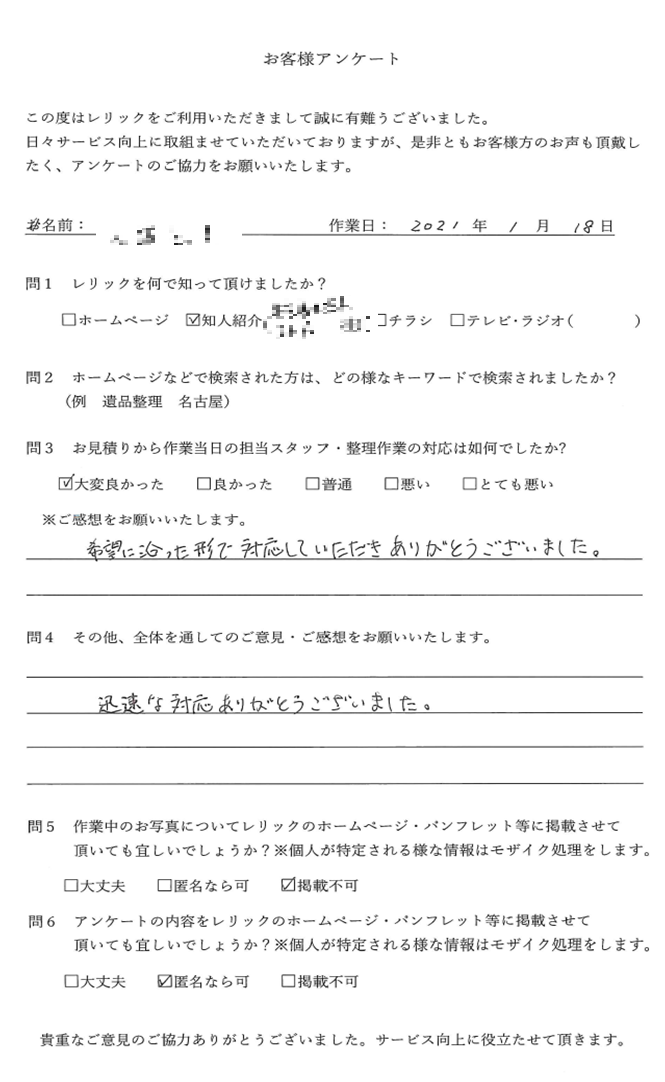 お客様アンケート
この度はレリックをご利用いただきまして誠に有難うございました。
日々サービス向上に取組ませていただいておりますが、是非ともお客様方のお声も頂戴し
たく、アンケートのご協力をお願いいたします。
お名前： 作業日： 2021 年 1 月 18 日
問１ レリックを何で知って頂けましたか？
□ホームページ ☑知人紹介 □チラシ □テレビ・ラジオ（ ）
問２ ホームページなどで検索された方は、どの様なキーワードで検索されましたか？
（例 遺品整理 名古屋）
問３ お見積りから作業当日の担当スタッフ・整理作業の対応は如何でしたか？
☑大変良かった □良かった □普通 □悪い □とても悪い
※ご感想をお願いいたします。
希望に沿った形で対応していただきありがとうございました。
問４ その他、全体を通してのご意見・ご感想をお願いいたします。
迅速な対応ありがとうございました。
問５ 作業中のお写真についてレリックのホームページ・パンフレット等に掲載させて
頂いても宜しいでしょうか？※個人が特定される様な情報はモザイク処理をします。
□大丈夫 □匿名なら可 ☑掲載不可
問６ アンケートの内容をレリックのホームページ・パンフレット等に掲載させて
頂いても宜しいでしょうか？※個人が特定される様な情報はモザイク処理をします。
□大丈夫 ☑匿名なら可 □掲載不可
貴重なご意見のご協力ありがとうございました。サービス向上に役立たせて頂きます。